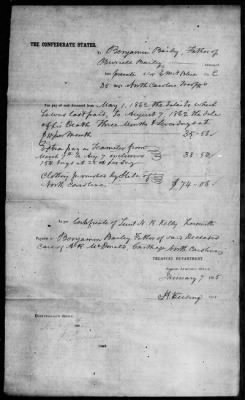 THE CONFEDERATE STATES,
To Benjamin Bailey, Father of
Burwell Bailey,
Private in
35 North Carolina Troops
For pay of the deceased from May 1, 1862 the date to which
he was last paid, to August 7, 1862 the date
of his Death Three Months & Seven days at
$11 per Month 35.53
Extra pay as Teamster from
March to Aug 7 inclusive
days at 25 cts per day 38.50
Clothing furnished by State of
North Carolina
$74.03
Certificate of Lieut H. R. Kelly herewith
Payable to Benjamin Bailey Father of said Deceased
Care of McDonald, Carthage North Carolina
TREASURY DEPARTMENT
Second Auditor's Office
January 7 1865
COMPTROLLER'S OFFICE